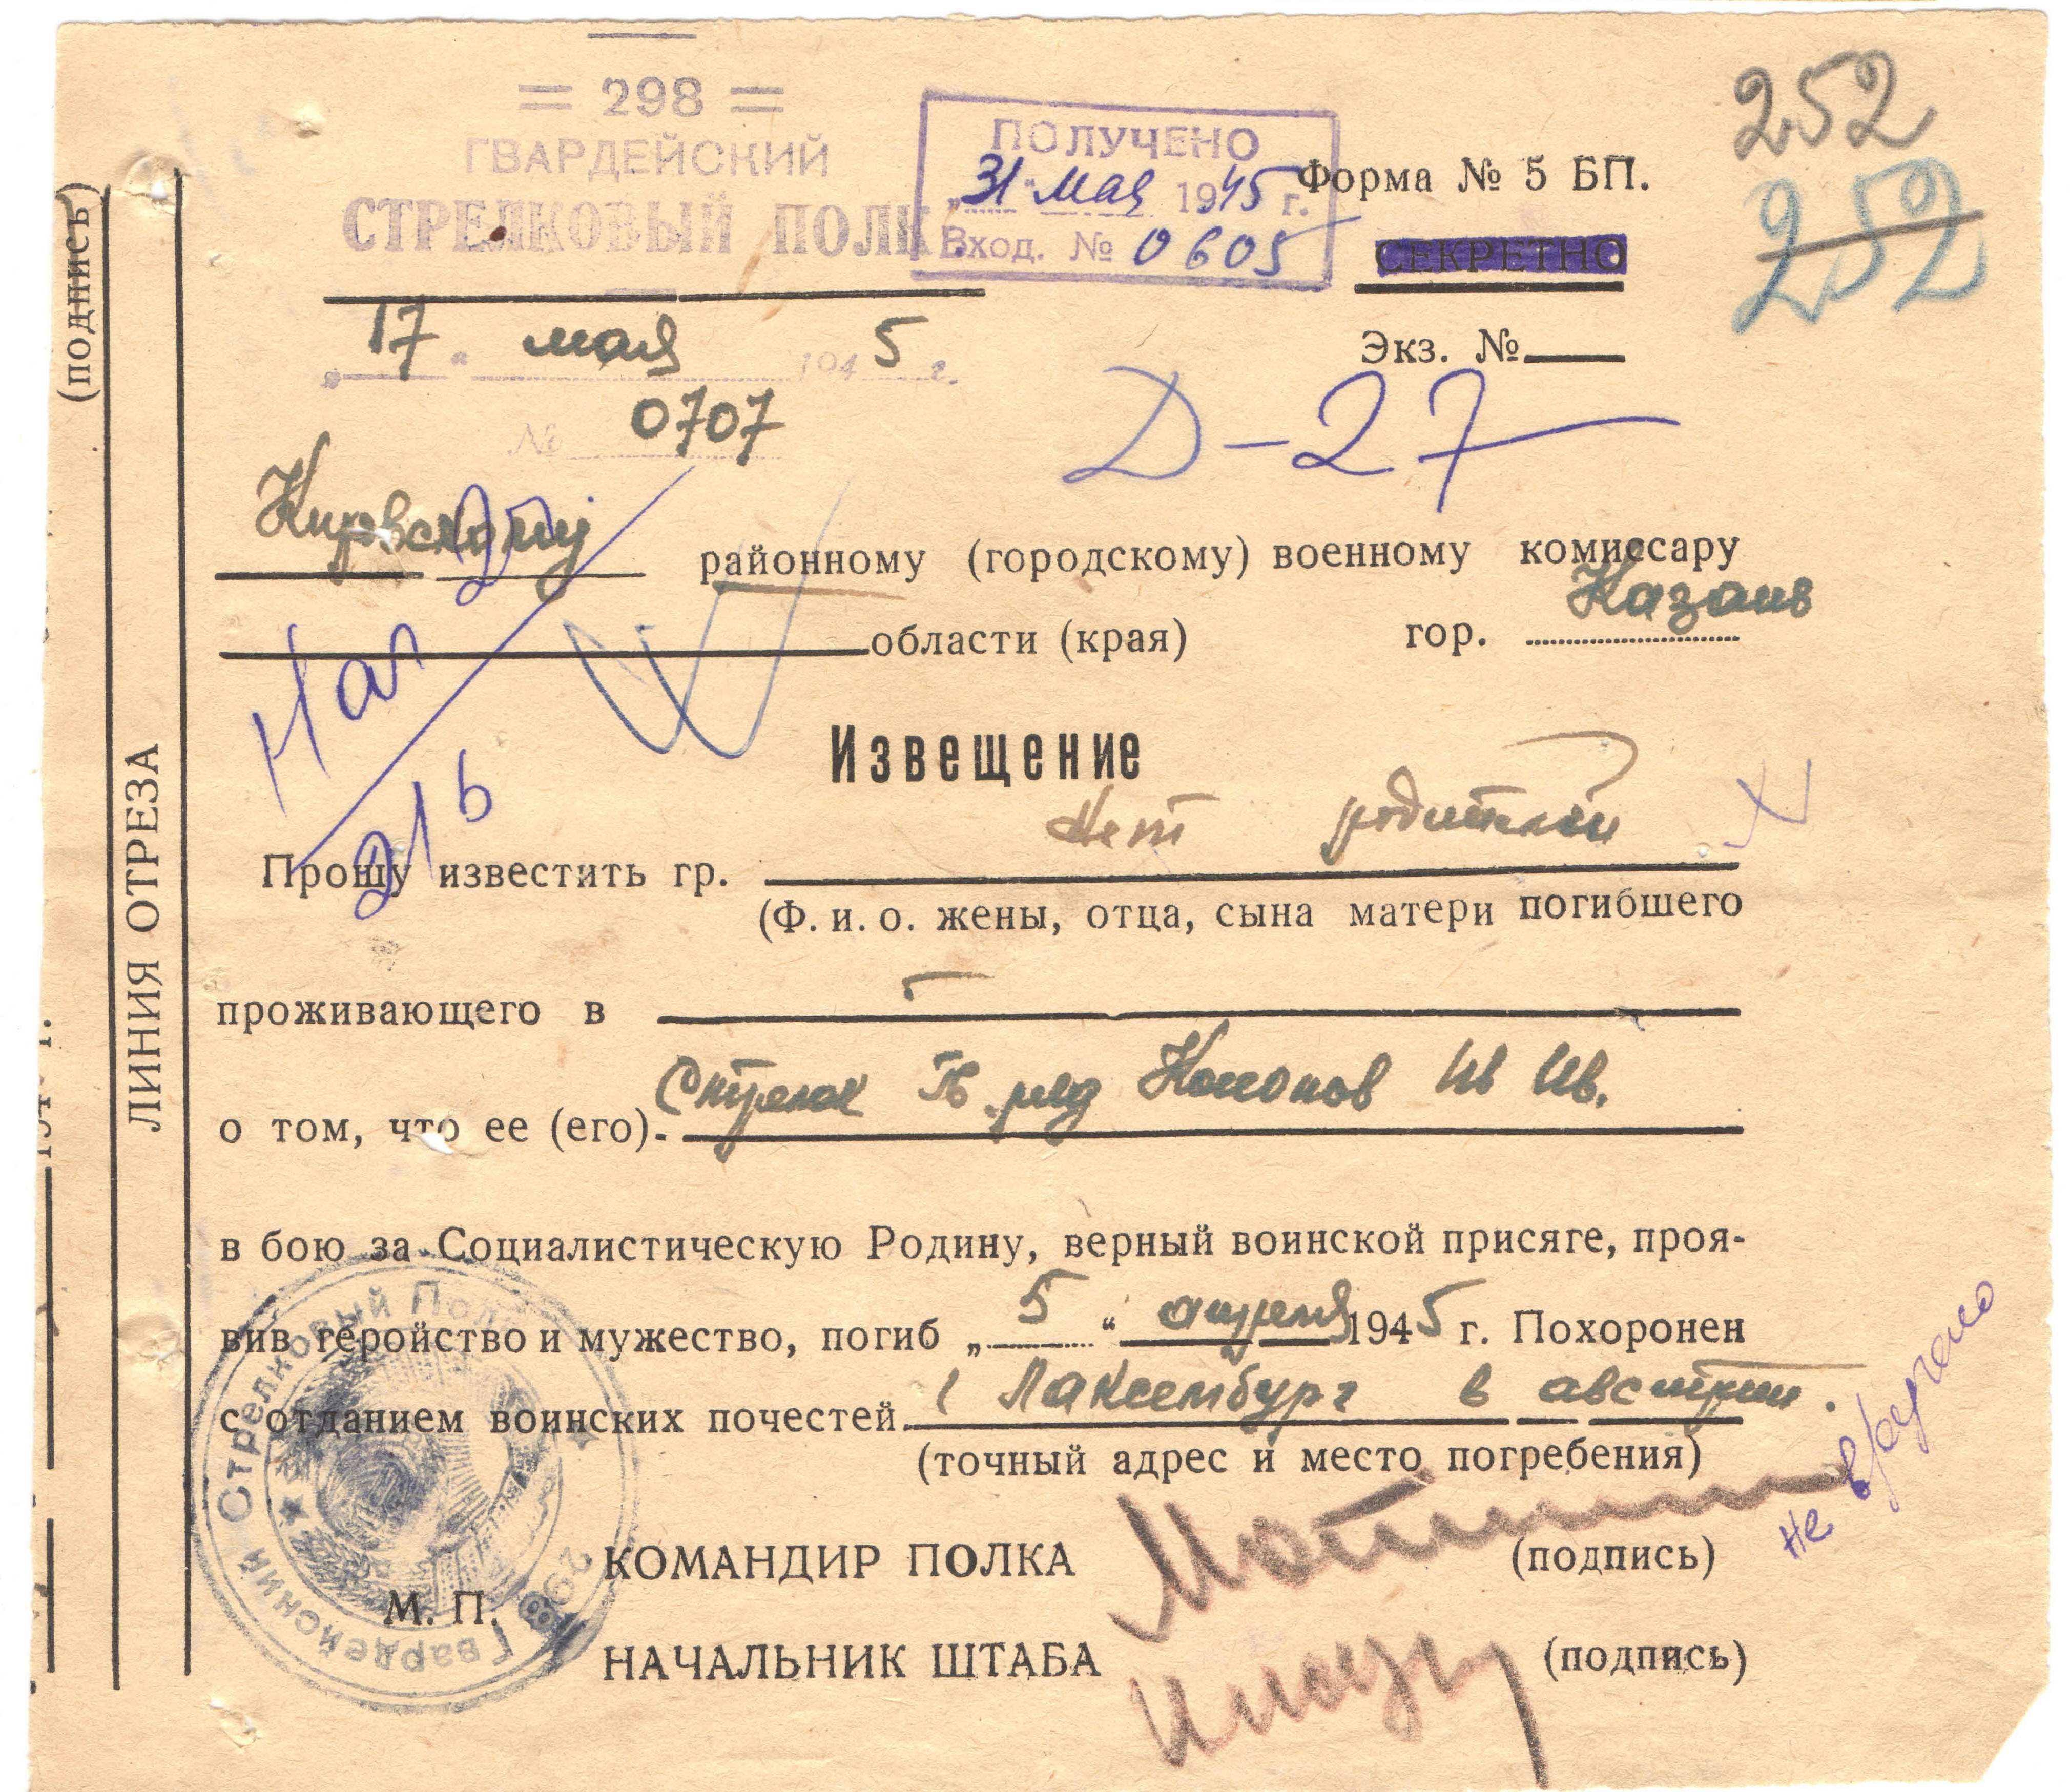 = 298 =
ГВАРДЕЙСКИЙ
СТРЕЛКОВЫЙ ПОЛК
ПОЛУЧЕНО
„31“ мая 1945 г.
Вход. № 0605
252
252
Форма № 5 БП.
СЕКРЕТНО
Экз. №
„17“ мая 1945 г.
№ 0707
Д-27
Кировскому районному (городскому) военному комиссару
области (края) гор. Казань
216
Извещение
Нет родителей
Прошу известить гр.
(Ф. и. о. жены, отца, сына матери погибшего
проживающего в
о том, что ее (его) Стрелок Гв. ряд Кононов Ив Ив.
в бою за Социалистическую Родину, верный воинской присяге, проя-
вив геройство и мужество, погиб „5“ апреля 1945 г. Похоронен
с отданием воинских почестей Лаксембург в австрии.
(точный адрес и место погребения)
Не вручено
КОМАНДИР ПОЛКА (подпись)
М. П.
НАЧАЛЬНИК ШТАБА (подпись)
298 Гвардейский Стрелковый Полк
ЛИНИЯ ОТРЕЗА
(подпись)